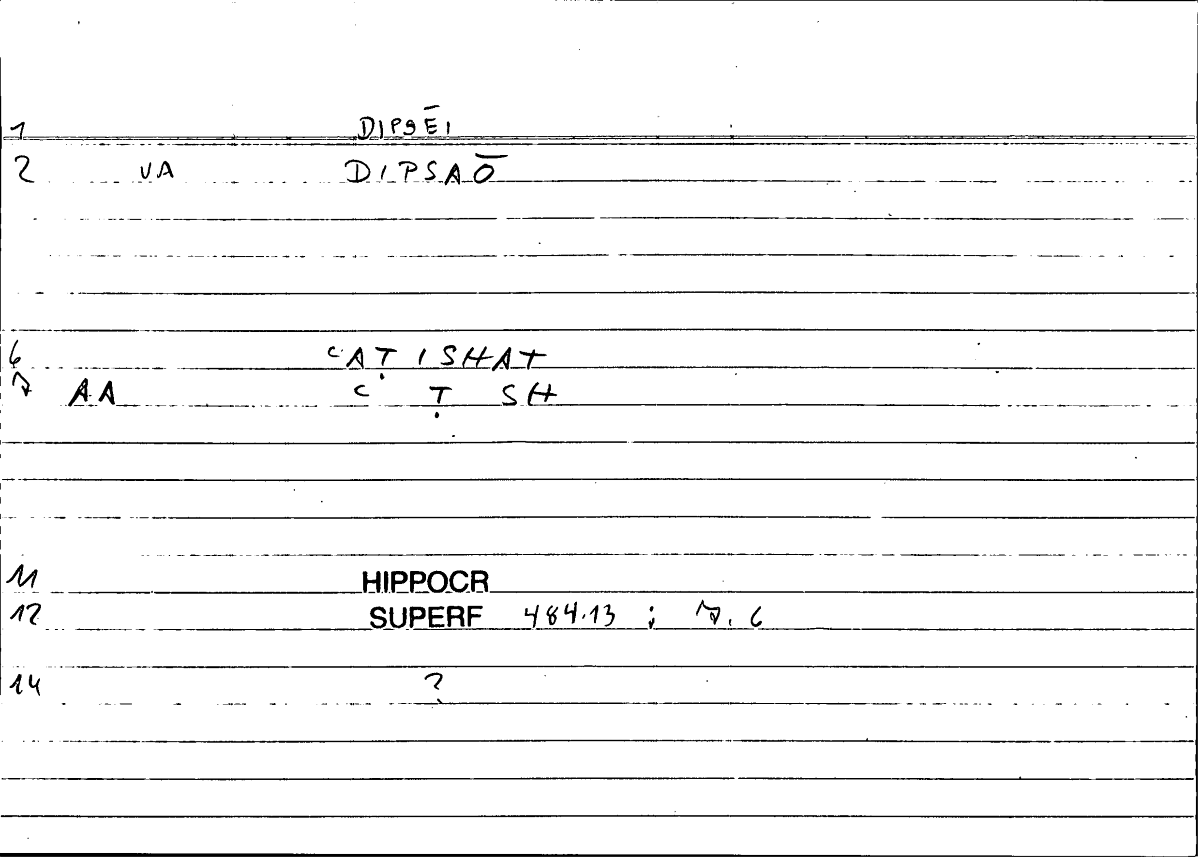 1 DIPSĒI
2 VA DIPSAŌ
6 cAṬISHAT
7 AA c Ṭ SH
11 HIPPOCR
12 SUPERF 484.13 ; 7.6
14 ?